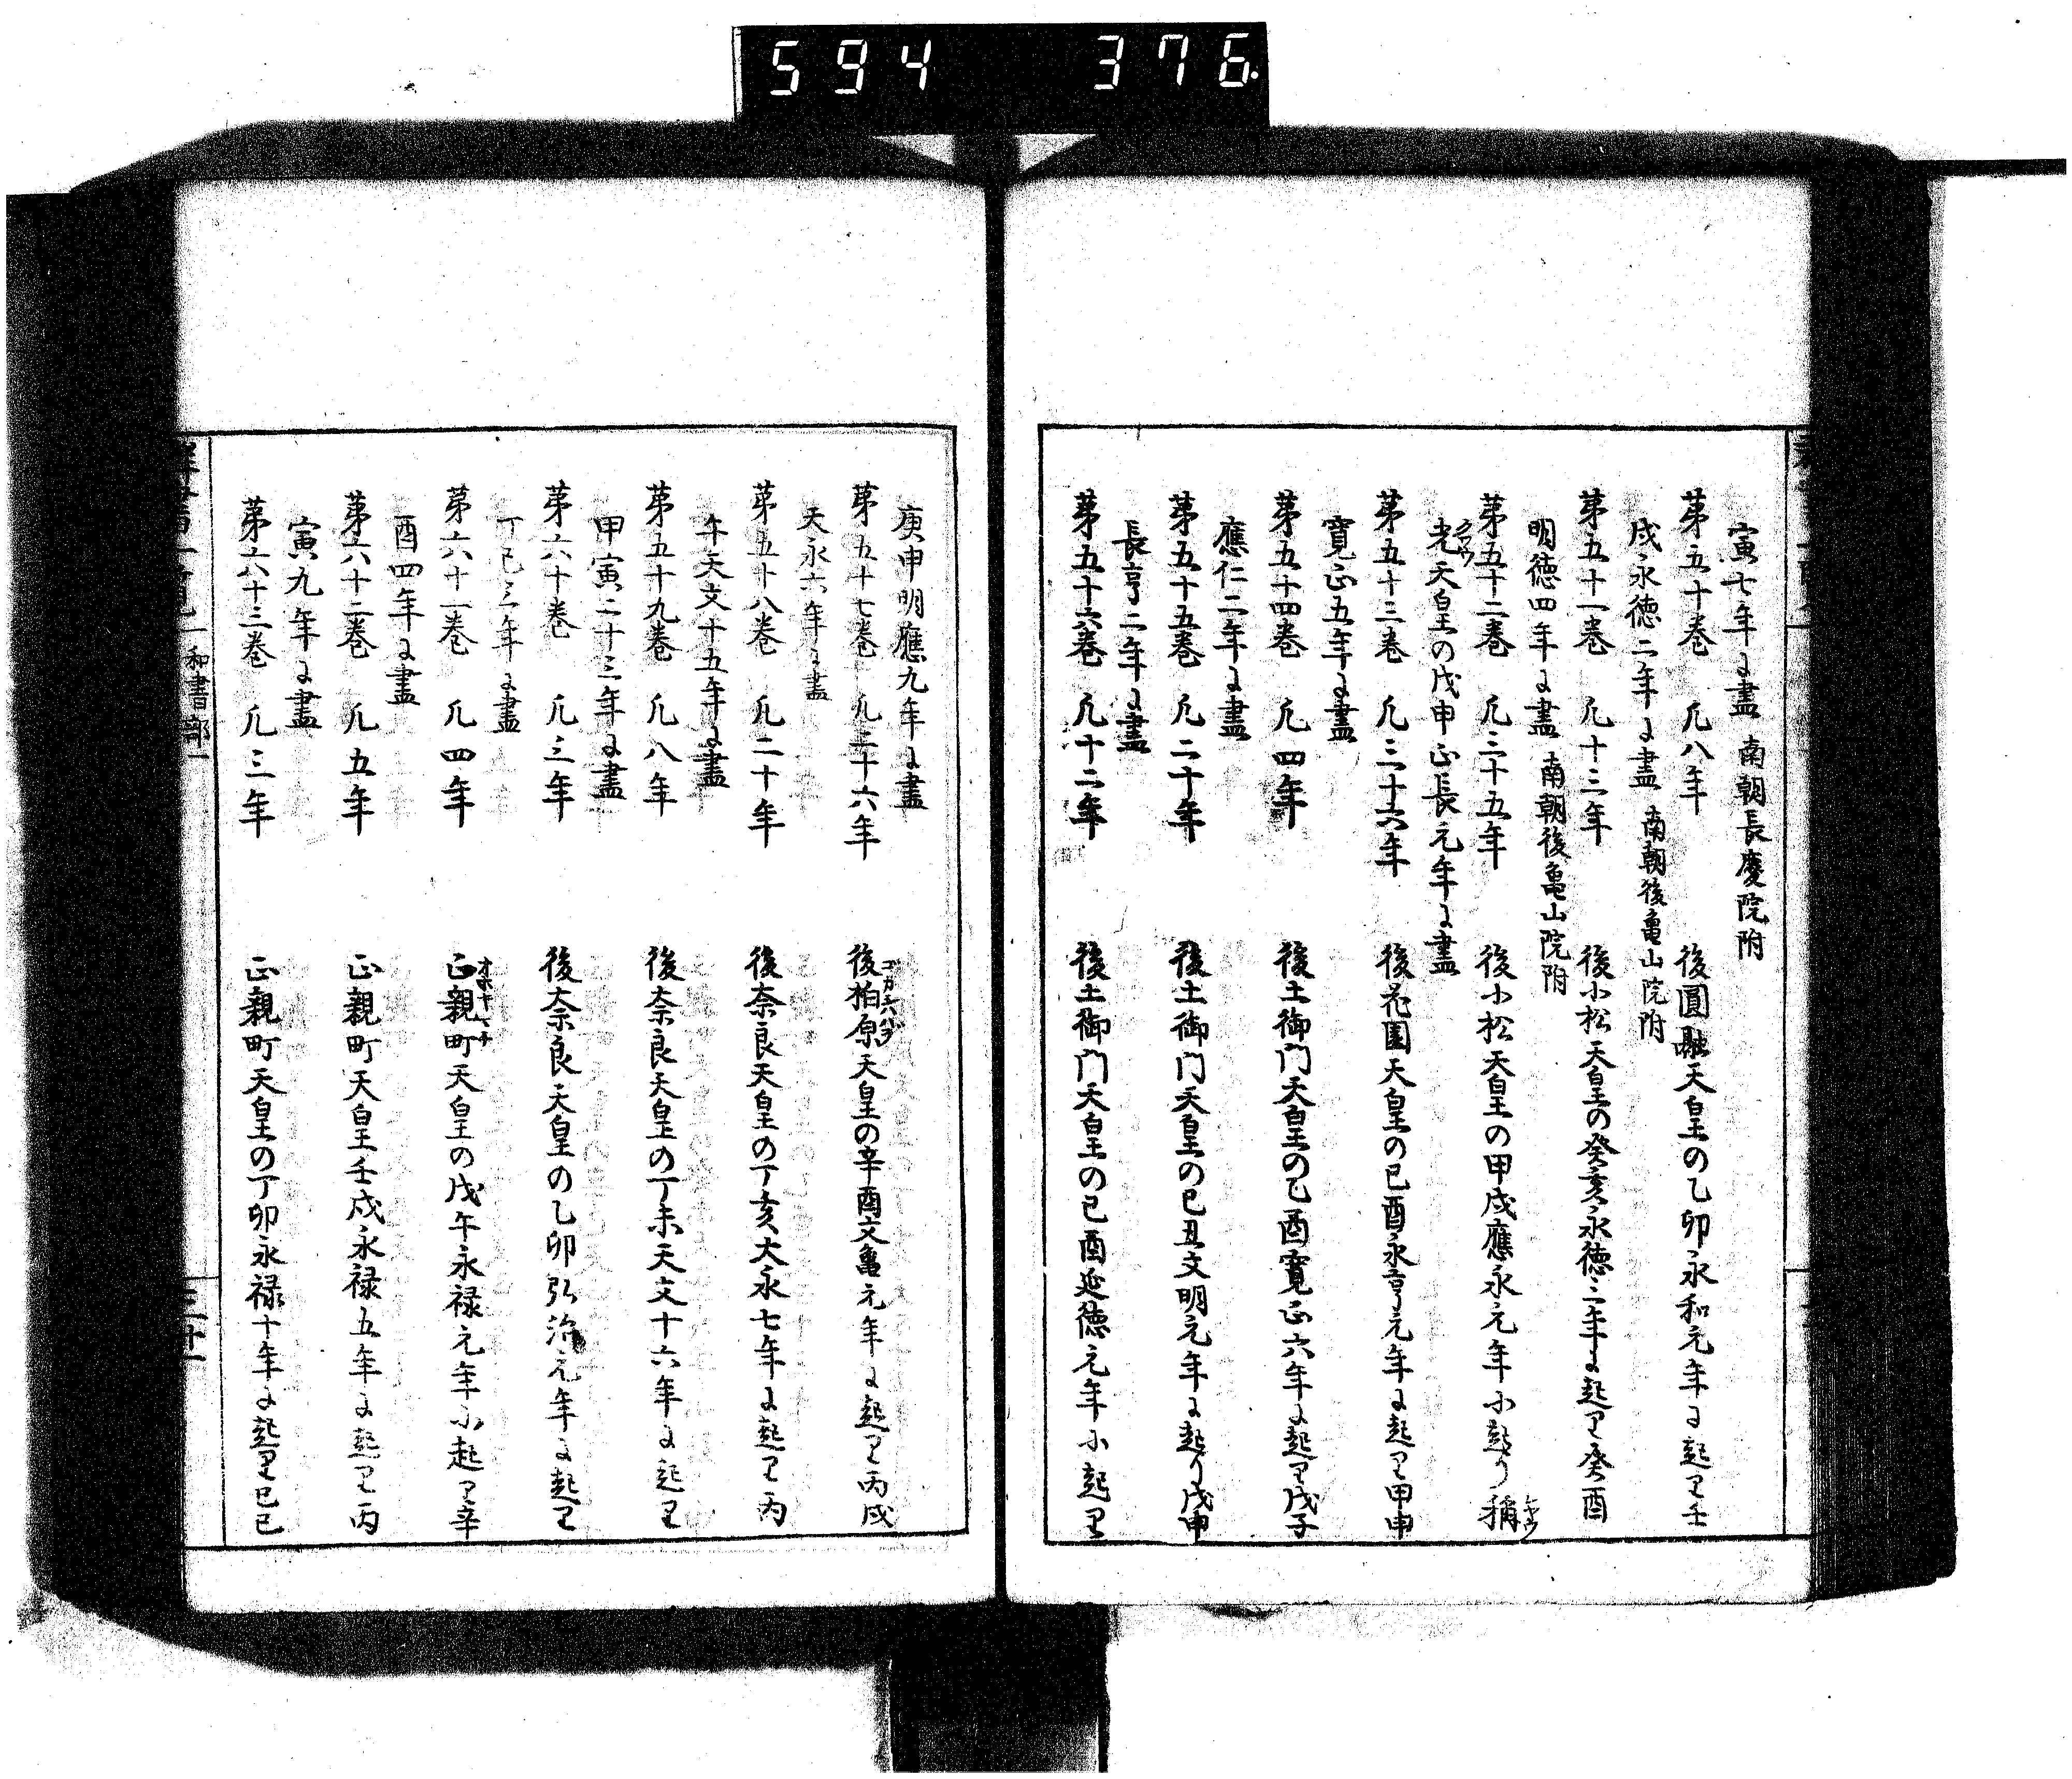 594 376
寅七年に盡 南朝長慶院附
第五十巻 凡八年 後圓融天皇の乙卯永和元年に起り壬
戌永徳二年に盡 南朝後亀山院附
第五十一巻 凡十三年 後小松天皇の癸亥永徳三年に起り癸酉
明徳四年に盡 南朝後亀山院附
第五十二巻 凡三十五年 後小松天皇の甲戌應永元年小起り稱
光天皇の戊申正長元年に盡
第五十三巻 凡三十六年 後花園天皇の己酉永亨元年に起り甲申
寛正五年に盡
第五十四巻 凡四年 後土御門天皇の乙酉寛正六年に起り戊子
應仁二年に盡
第五十五巻 凡二十年 後土御門天皇の己丑文明元年に起り戊申
長亨二年に盡
第五十六巻 凡十二年 後土御門天皇の己酉延徳元年小起り
庚申明應九年に盡
第五十七巻 凡二十六年 後柏原天皇の辛酉文亀元年に起り丙戌
大永六年に盡
第五十八巻 凡二十年 後奈良天皇の丁亥大永七年に起り丙
午天文十五年に盡
第五十九巻 凡八年 後奈良天皇の丁未天文十六年に起り
甲寅二十三年に盡
第六十巻 凡三年 後奈良天皇の乙卯弘治元年に起り
丁巳三年に盡
第六十一巻 凡四年 正親町天皇の戊午永禄元年小起り辛
酉四年に盡
第六十二巻 凡五年 正親町天皇壬戌永禄五年に起り丙
寅九年に盡
第六十三巻 凡三年 正親町天皇の丁卯永禄十年に起り己巳
和書部